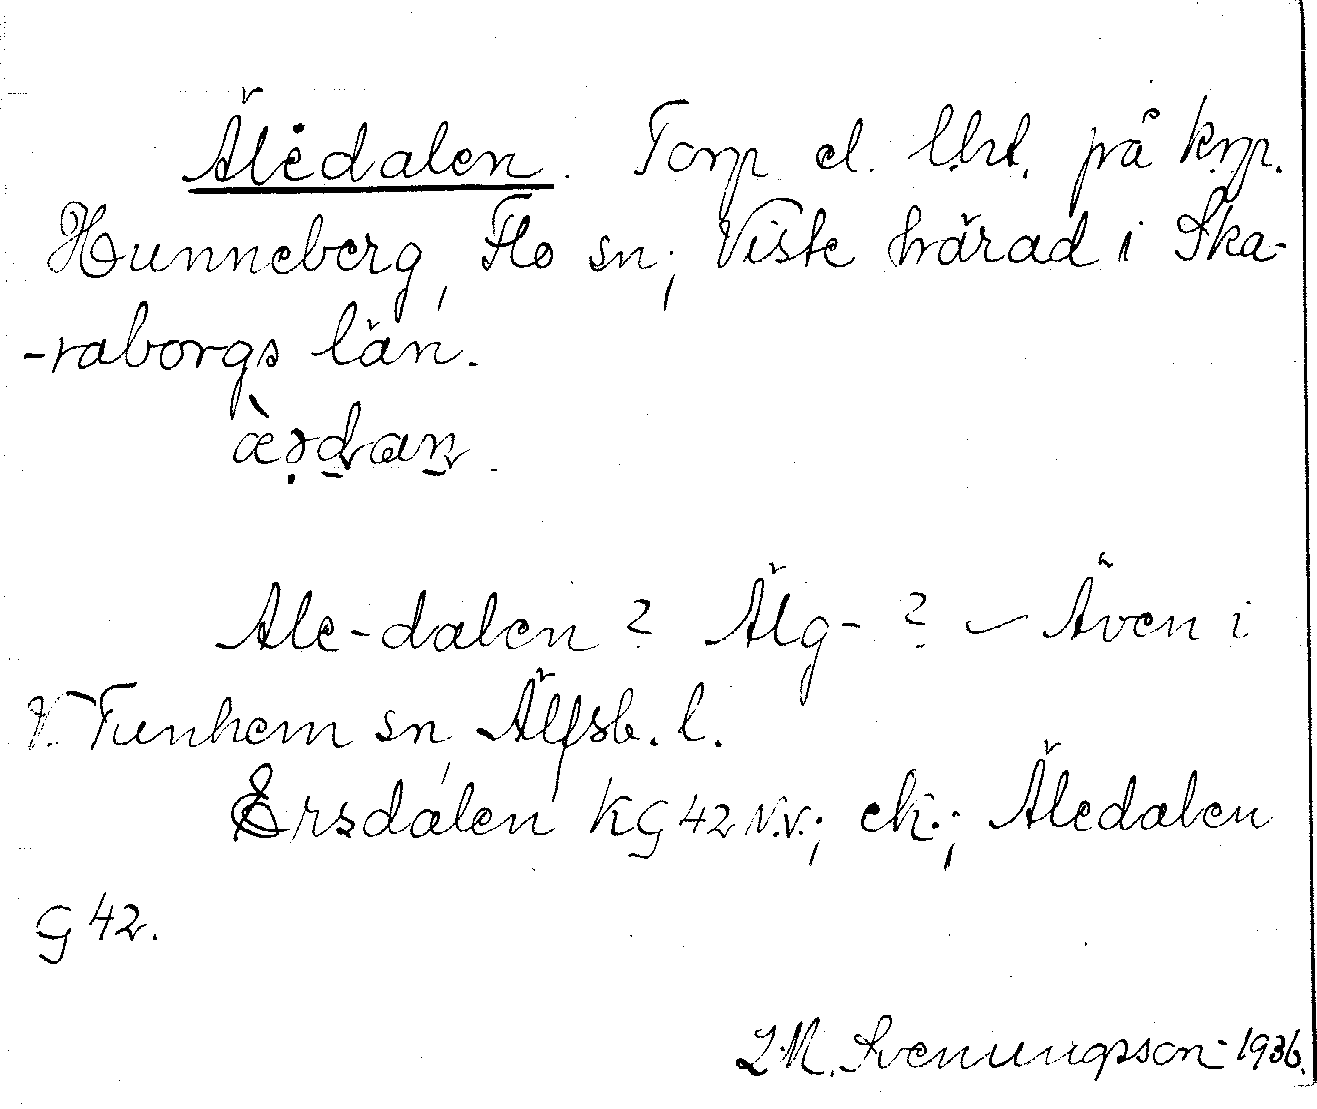 Äledalen. Torp el. lht. på krp.
Hunneberg, Flo sn; Viste härad i Ska-
-raborgs län.
Ale-dalen? Älg-? – Även i
V. Tunhem sn, Älfsb. l.
Ersdalen KG42N.V.; ek.; Äledalen
G42.
Svenungsson 1936.